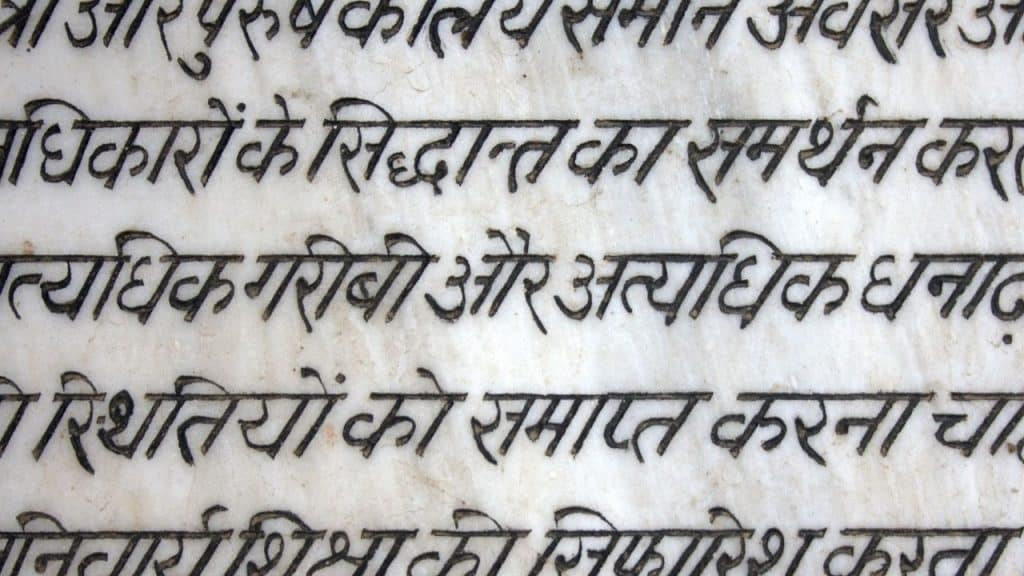 और पुरुष के लिये समान अवसर
धिकारों के सिद्धान्त का समर्थन कर
त्यधिक गरीबी और अत्यधिक धनाढ़
स्थितियों को समाप्त करना चा
निवार्य शिक्षा की सिफारिश करता